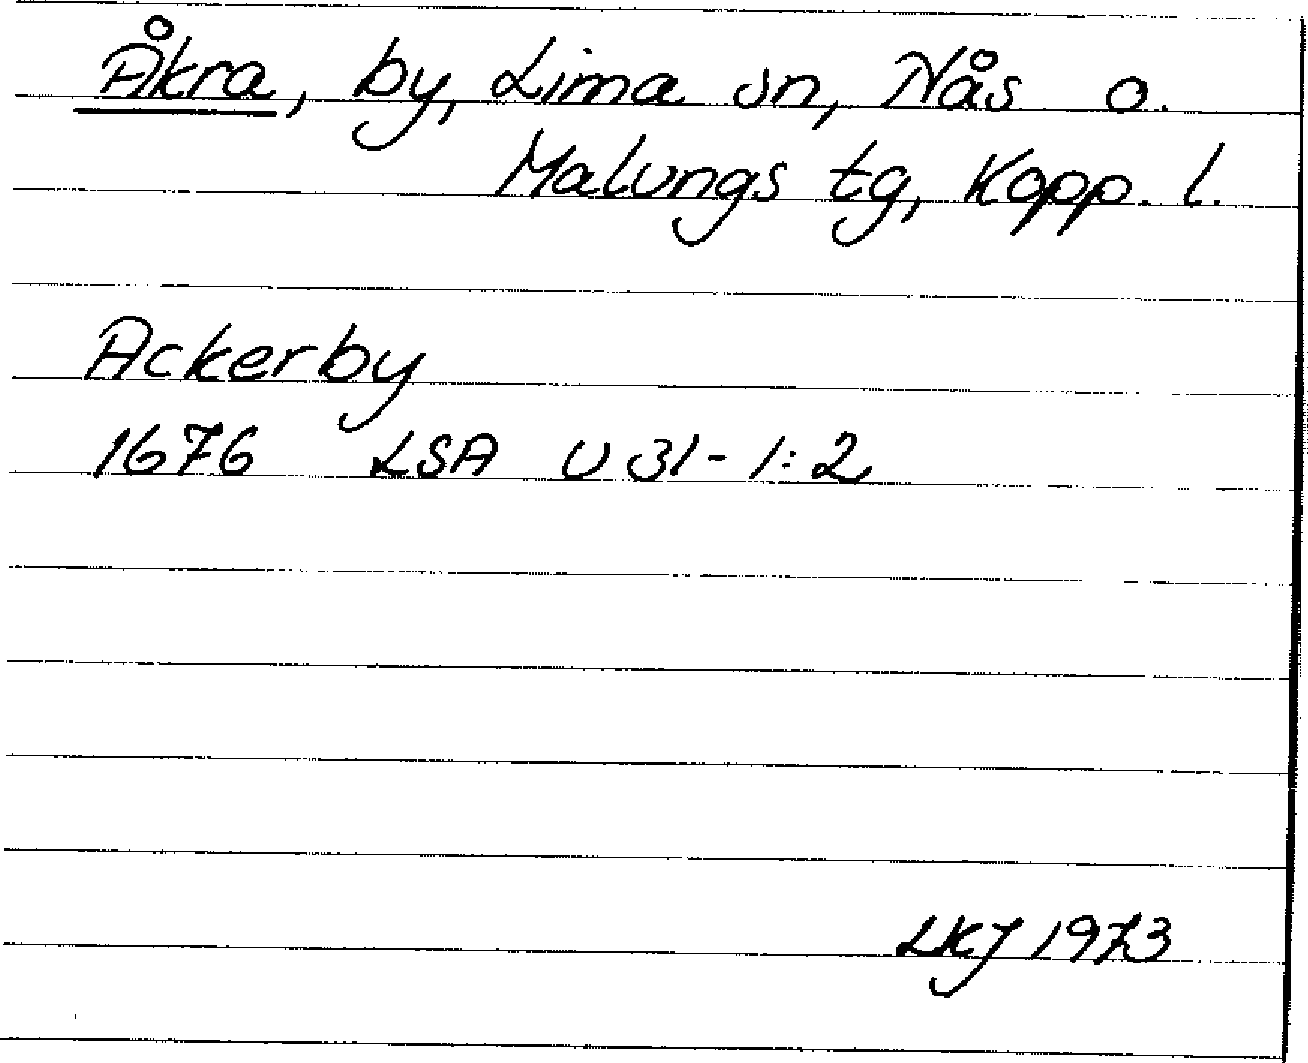 Åkra, by, Lima sn, Nås o.
Malungs tg, Kopp. l.
Ackerby
1676 LSA U 31-1:2
LKJ 1973